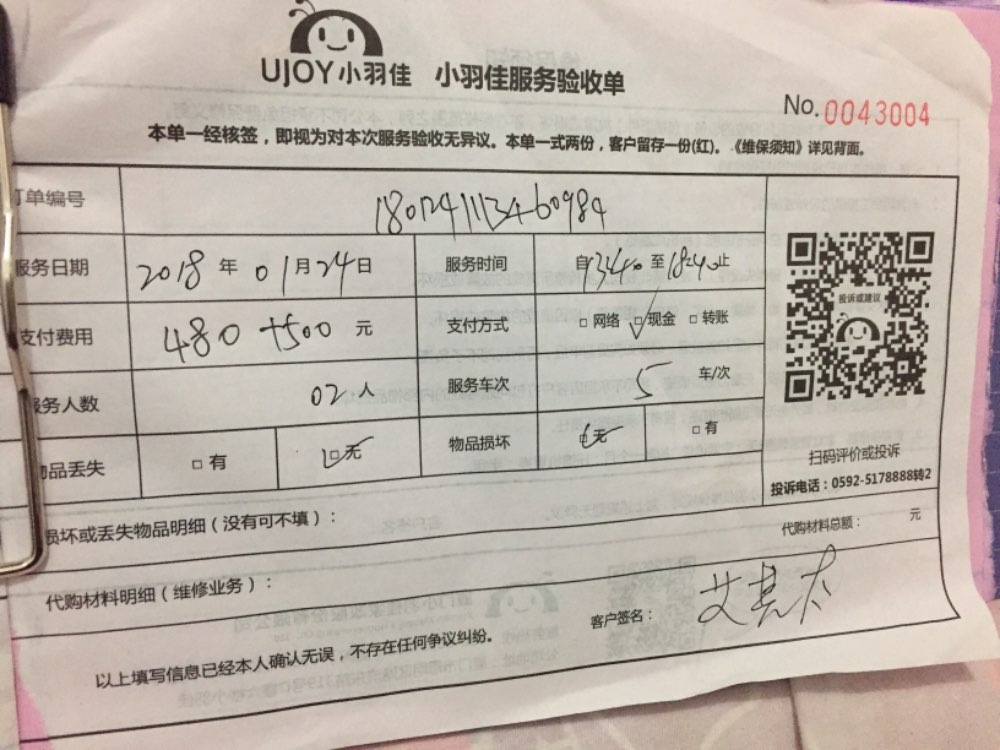 UJOY小羽佳 小羽佳服务验收单
No.0043004
本单一经核签，即视为对本次服务验收无异议。本单一式两份，客户留存一份(红)。《维保须知》详见背面。
订单编号 1801241113460984
服务日期 2018 年 01 月 24 日 服务时间 自 至 止
支付费用 480 +500 元 支付方式 □ 网络 □ 现金 □ 转账
服务人数 02 人 服务车次 5 车/次
物品丢失 □ 有 □ 无 物品损坏 无 □ 有
投诉或建议
扫码评价或投诉
投诉电话：0592-5178888转2
损坏或丢失物品明细（没有可不填）：
代购材料总额： 元
代购材料明细（维修业务）：
客户签名：
以上填写信息已经本人确认无误，不存在任何争议纠纷。